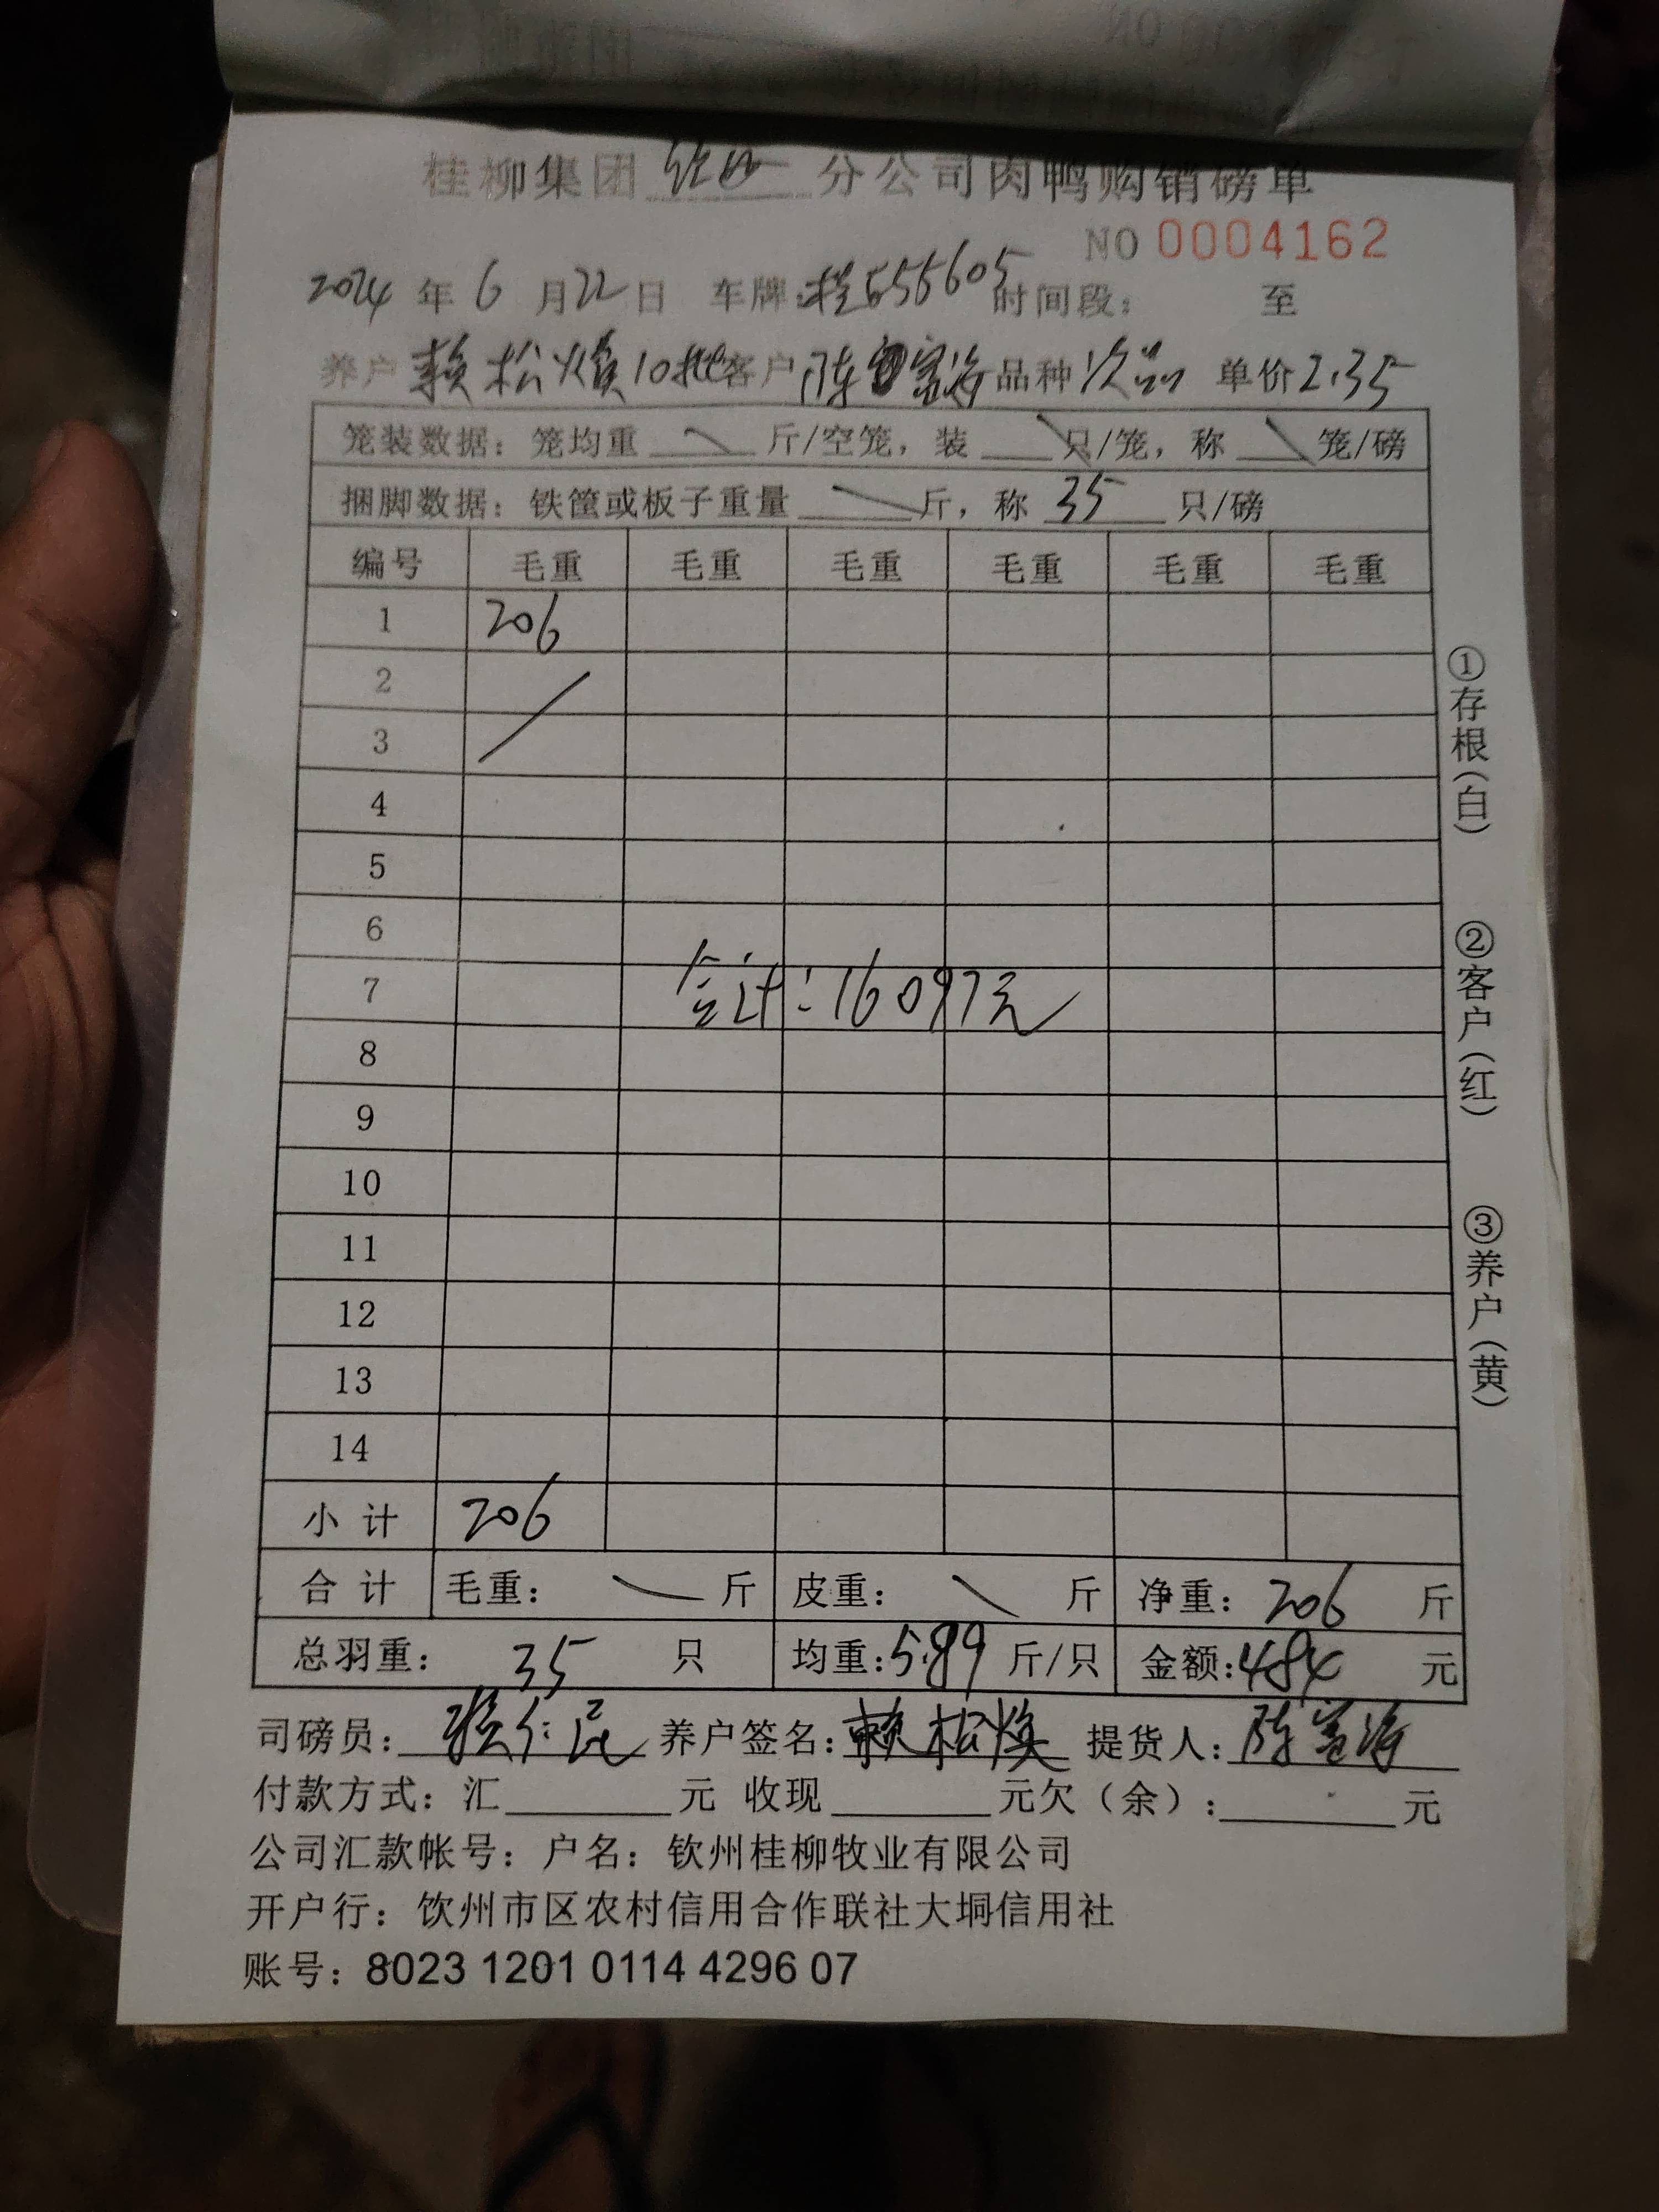 桂柳集团 分公司肉鸭购销磅单
NO 0004162
2024 年 6 月 22 日 车牌: 时间段: 至
养户 赖松焕 10批 客户 陈富海 品种 次品 单价 2.35
笼装数据: 笼均重 斤/空笼, 装 只/笼, 称 笼/磅
捆脚数据: 铁筐或板子重量 斤, 称 35 只/磅
编号 毛重 毛重 毛重 毛重 毛重 毛重
1 206
2
3
4
5
6
7 合计:16097元
8
9
10
11
12
13
14
小计 206
合计 毛重: 斤 皮重: 斤 净重: 206 斤
总羽重: 35 只 均重:5.89 斤/只 金额:484 元
司磅员: 养户签名:赖松焕 提货人:陈富海
付款方式: 汇 元 收现 元欠(余): 元
公司汇款帐号: 户名: 钦州桂柳牧业有限公司
开户行: 钦州市区农村信用合作联社大垌信用社
账号: 8023 1201 0114 4296 07
①存根(白)
②客户(红)
③养户(黄)